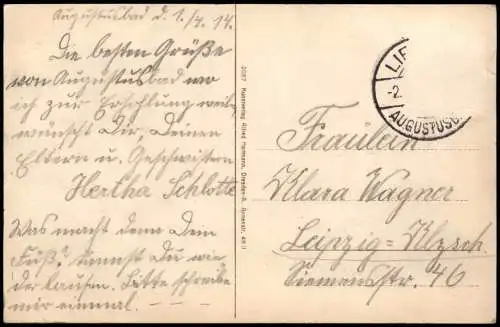 Augustusbad d. 1./4. 14.
Die besten Grüße
von Augustusbad wo
ich zur Erholung weile,
wünscht Dir, Deinen
Eltern u. Geschwistern
Hertha Schlotte
Was macht denn Dein
Fuß? kannst Du wie-
der laufen. Bitte schreibe
mir einmal. — — —
2087 Kunstverlag Alfred Hartmann, Dresden-A.
AUGUSTUSB
-2.
Fräulein
Klara Wagner
Leipzig=Klzsch.
Siemensstr. 46